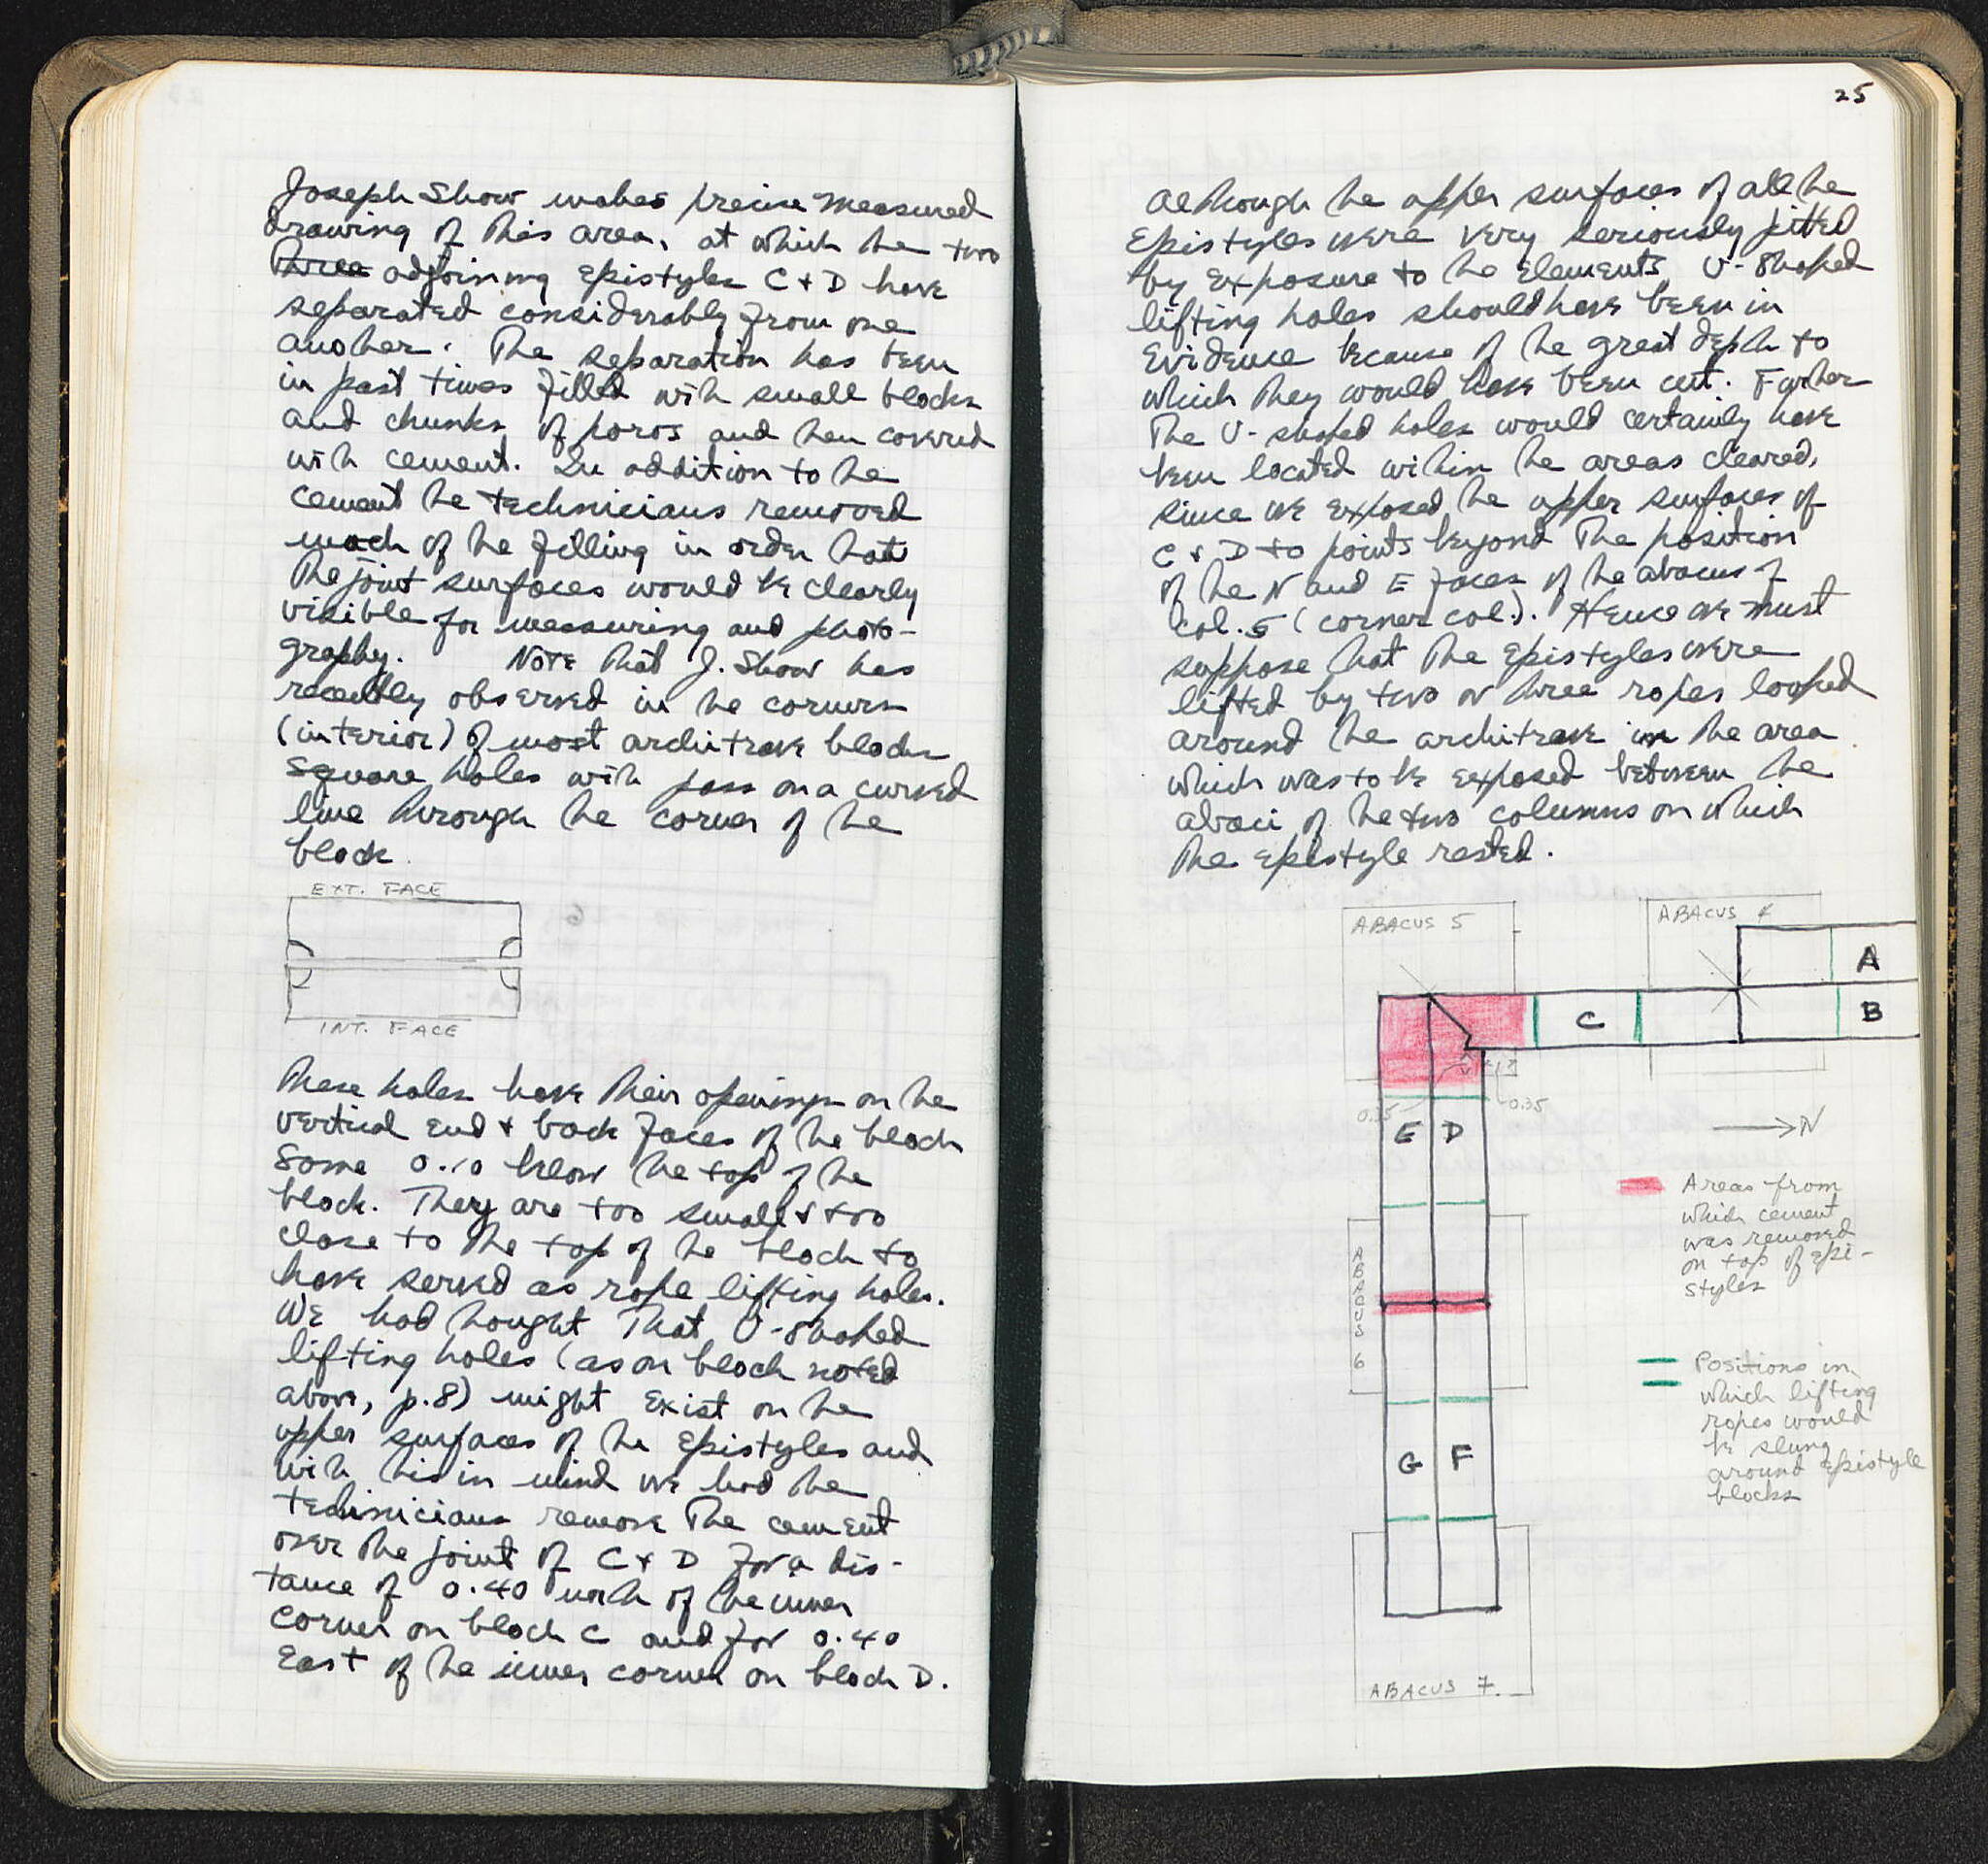 Joseph Shaw makes precise measured
drawing of this area, at which the two
three adjoining epistyles C + D have
separated considerably from one
another. The separation has been
in past times filled with small blocks
and chunks of poros and then covered
with cement. In addition to the
cement the technicians removed
much of the filling in order that
the joint surfaces would be clearly
visible for measuring and photo-
graphy. NOTE that J. Shaw has
recently observed in the corners
(interior) of most architrave blocks
square holes with pass on a curved
line through the corner of the
block.
EXT. FACE
INT. FACE
These holes have their openings on the
vertical end + back faces of the block
some 0.10 below the top of the
block. They are too small + too
close to the top of the block to
have served as rope lifting holes.
We had thought that U-shaped
lifting holes (as on block noted
above, p.8) might exist on the
upper surfaces of the epistyles and
with this in mind we had the
technicians remove the cement
over the joint of C + D for a dis-
tance of 0.40 north of the inner
corner on block C and for 0.40
East of the inner corner on block D.
25
Although the upper surfaces of all the
Epistyles were very seriously pitted
by exposure to the elements, U-shaped
lifting holes should have been in
evidence because of the great depth to
which they would have been cut. Further
the U-shaped holes would certainly have
been located within the areas cleared,
since we exposed the upper surfaces of
C + D to points beyond the position
of the N and E faces of the abacus of
Col. 5 (corner col.). Hence we must
suppose that the epistyles were
lifted by two or three ropes looped
around the architrave in the area
which was to be exposed between the
abaci of the two columns on which
the epistyle rested.
ABACUS 5
ABACUS 4
A
C
B
0.35
0.35
E D
N
Areas from
which cement
was removed
on top of epi-
styles
ABACUS 6
Positions in
which lifting
ropes would
be slung
around epistyle
blocks
G F
ABACUS 7.